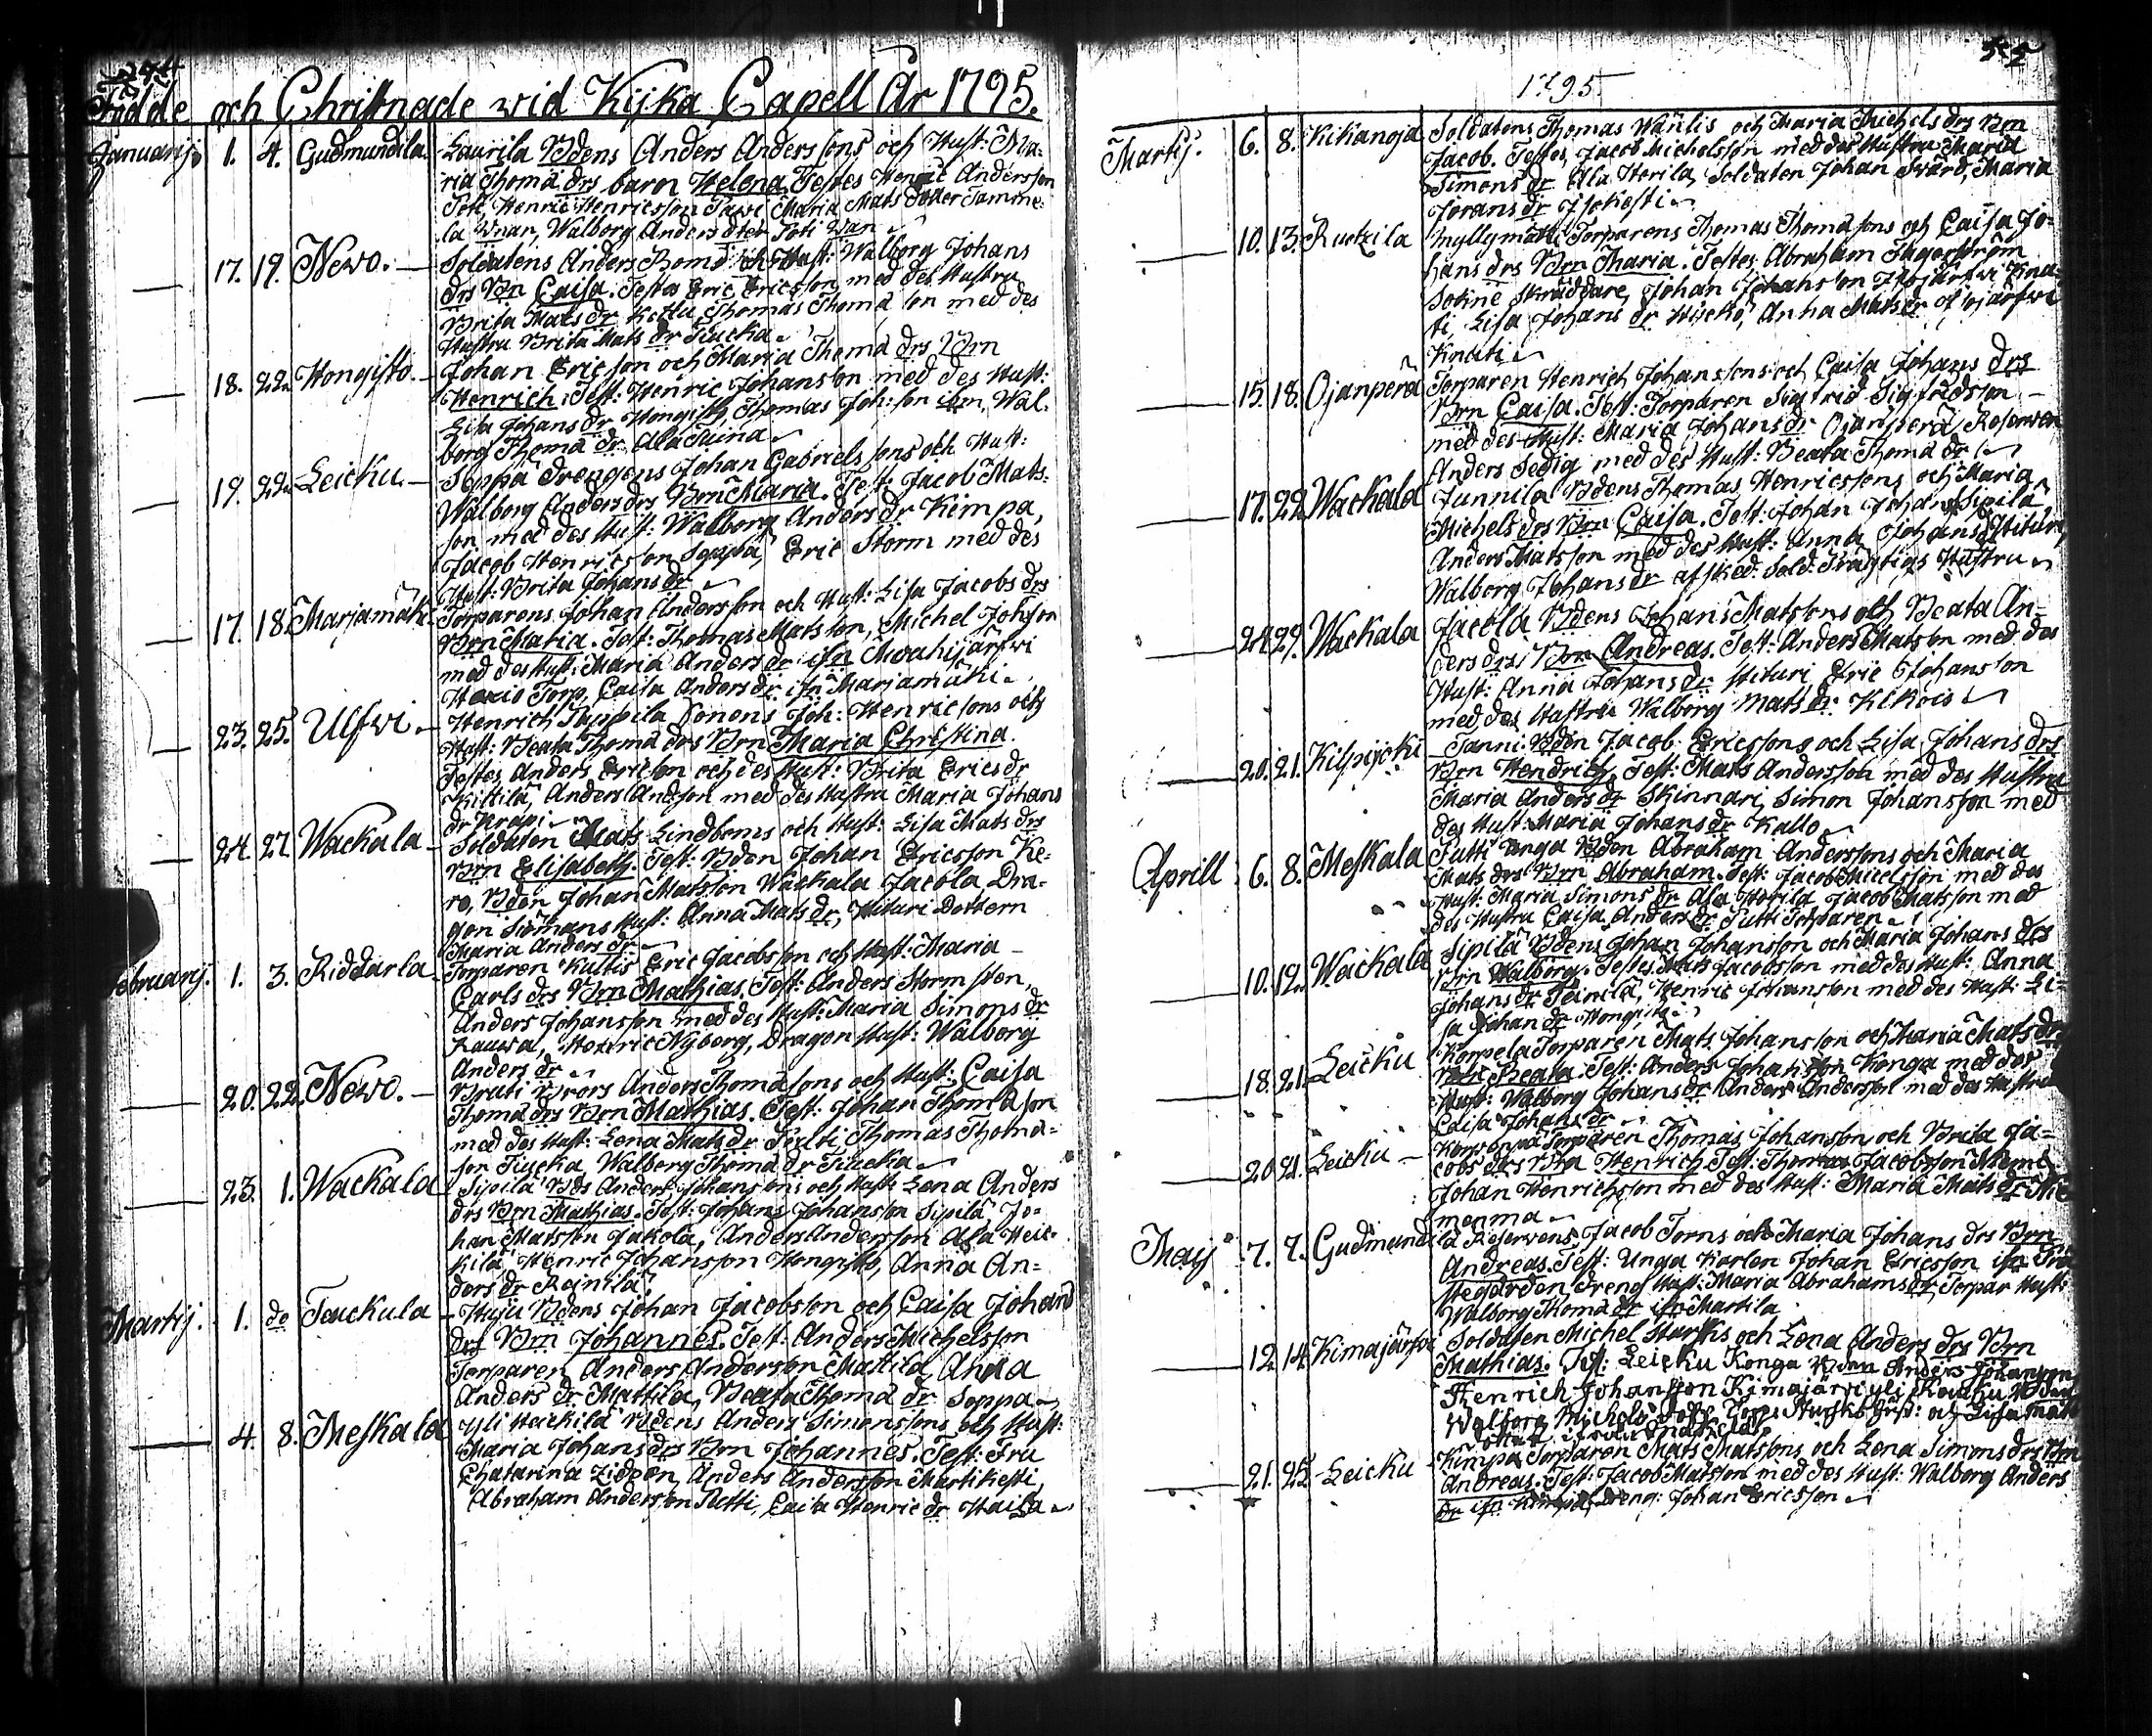 Födde och Christnade wid Kijka Capell År 1795.
Januarij. 1. 4. Gudmundila. Laurila Bdens Anders Anderssons och Hust: Ma-
ria Thomä drs barn Helena. Testes Henric Andersson
Henric Henricsson Maria Mats Dotter Tamme-
la Walborg Anders dter
17. 19. Newo. Soldatens Anders Boms och Hust: Walborg Johans
drs Brn Caisa. Testes Eric Ericsson med des Hustru
Brita Mats dr Kottu, Thomas Thomä son med des
Hustru Brita Mats dr Tiucka
18. 22. Hongisto. Johan Ericson och Maria Thomä drs Brn
Henrich. Test: Henric Johansson med des Hust:
Lisa Johans dr Hongisto, Thomas Joh:son ibm, Wal-
borg Thomä dr Ala
19. 22. Leicku. Soppa Drengens Johan Gabriels sons och Hust:
Walborg Anders drs Brn Maria. Test: Jacob Mats-
son med des Hust: Walborg Anders dr Kimpa,
Jacob Henricsson Soppa, Eric Storm med des
Hust: Brita Johans dr
17. 18. Marjamäki. Torparens Johan Andersson och Hust: Lisa Jacobs drs
Brn Maria. Test: Thomas Matsson, Michel Johsson
med des Hust: Maria Anders dr ifn
Torp. Caisa Anders dr ifn Marjamäki
23. 25. Ulfwi. Henrich Sonens Joh: Henricsons och
Hust: Beata Thomä drs Brn Maria Christina.
Testes Anders Ericson och des Hust: Brita Erics dr
Kittilä, Anders Andson med des Hustru Maria Johans
dr
24. 27. Wackala Soldaten Mats Lindboms och Hust: Lisa Mats drs
Brn Elisabeth. Test: Bden Johan Ericsson Ke-
ro, Bden Johan Matsson Wackala Jacola Dra-
gon Hust: Anna Mats dr, Hituri Dottern
Maria Anders dr
Februarij. 1. 3. Riddarla Torparen Kultis Eric Jacobsson och Hust: Maria
Carls drs Brn Mathias. Test: Anders Stormsten,
Anders Johansson med des Hust: Maria Simons dr
Rauwa, Henric Nyborg, Dragon Hust: Walborg
Anders dr
20. 22. Newo. Anders Thomäsons och Hust: Caisa
Thomä drs Brn Mathias. Test: Johan Thomäson
med des Hust: Lena Mats dr Thomas Thomä-
son Tiucka, Walborg Thomä dr Tiucka
23. 1. Wackala Sipilä Bds Anders Johanssons och Hust: Lena Anders
drs Brn Mathias. Test: Johans Johansson Sipilä Jo-
han Matsson Jakola, Anders Andersson Ala Heic-
kilä Henric Johansson Hongisto, Anna An-
ders dr
Martij. 1. do Tauckula Bdens Johan Jacobsson och Caisa Johans
drs Brn Johannes. Test: Anders Michelsson
Torparen Anders Anderson Mattila, Anna
Anders dr Mattila, Beata Thomä dr Soppa
4. 8. Meskala Yli Bdens Anders Simonssons och Hust:
Maria Johans drs Brn Johannes. Test: Fru
Chatarina Anders Anderson Martikesti
Abraham Andersson Caisa Henric dr
1795
Martij. 6. 8. Kikanoja Soldatens Thomas och Maria Michels drs Brn
Jacob. Testes, Jacob Michelsson med des Hustru Maria
Simons dr Ala Horila, Soldaten Johan Svärd, Maria
Jörans dr
10. 13. Rutzila Myllymäki Torparens Thomas Thomäsons och Caisa Jo-
hans drs Brn Maria. Testes Abraham Fagerström
Sokine Skräddare, Johan Johansson
Lisa Johans dr Anna Mats dr
Knuti
15. 18. Ojanperä Torparen Henrich Johanssons och Caisa Johans drs
Brn Caisa. Test: Torparen Sigfrid Sigfridsson
med des Hust: Maria Johans dr Ojanperä, Reserven
Anders Sedig med des Hust: Beata Thomä dr
17. 22. Wackala Junnila Bdens Thomas Henricssons och Maria
Michels drs Brn Caisa. Test: Johan Johans Sipilä
Anders Matsson med des Hust: Anna Johans dr Hituri,
Walborg Johans dr afsked: Sold: Hustru
28. 29. Wackala Jacola Bdens Johans Matssons och Beata An-
ders drs Brn Andreas. Test: Anders Matsson med des
Hust: Anna Johans dr Hituri Eric Johansson
med des Hustru Walborg Mats dr
20. 21. Kilpijoki Tanni Bden Jacob Ericssons och Lisa Johans drs
Brn Hendrich. Test: Mats Andersson med des Hustru
Maria Anders dr Skinnari, Simon Johansson med
des Hust: Maria Johans dr Kallo
Aprill 6. 8. Meskala Putti Unga Bden Abraham Anderssons och Maria
Mats drs Brn Abraham. Test: Jacob Micelsson med des
Hust: Maria Simons dr Ala Horila Jacob Matsson med
des Hustru Caisa Anders dr Putti Torparen
10. 12. Wackala Sipilä Bdens Johan Johansson och Maria Johans drs
Brn Walborg. Testes Mats Jacobsson med des Hust: Anna
Johans dr Henric Johansson med des Hust: Li-
sa Johan dr Hongisto
18. 21. Leicku Korpela Torparen Mats Johansson och Maria Mats drs
Brn Beata. Test: Anders Johansson Konga med des
Hust: Walborg Johans dr Anders Andersson med des Hustru
Caisa Johans dr
20. 21. Leicku Torparen Thomas Johansson och Brita Ja-
cobs drs Brn Henrich. Test: Thomas Jacobsson
Johan Henrichsson med des Hust: Maria Mats dr Nie-
menmaa
Maij 7. 7. Gudmundila Reservens Jacob Torns och Maria Johans drs Brn
Andreas. Test: Unga Karlen Johan Ericsson ifn
Dreng Hust: Maria Abrahams dr, Torpar Hust:
Walborg Thomä dr ifn Martila
12. 14. Kimajärfvi Soldaten Michel Starks och Lena Anders drs Brn
Mathias. Test: Leicku Konga Bden Anders Johansson
Henrich Johansson Kimajärvi yli Bden
Walborg Michels Torp. och Lisa Mats
21. 25. Leicku Kimpa Torparen Mats Matssons och Lena Simons drs Brn
Andreas. Test: Jacob Matsson med des Hust: Walborg Anders
dr ifn Kimpa, Dreng: Johan Ericsson